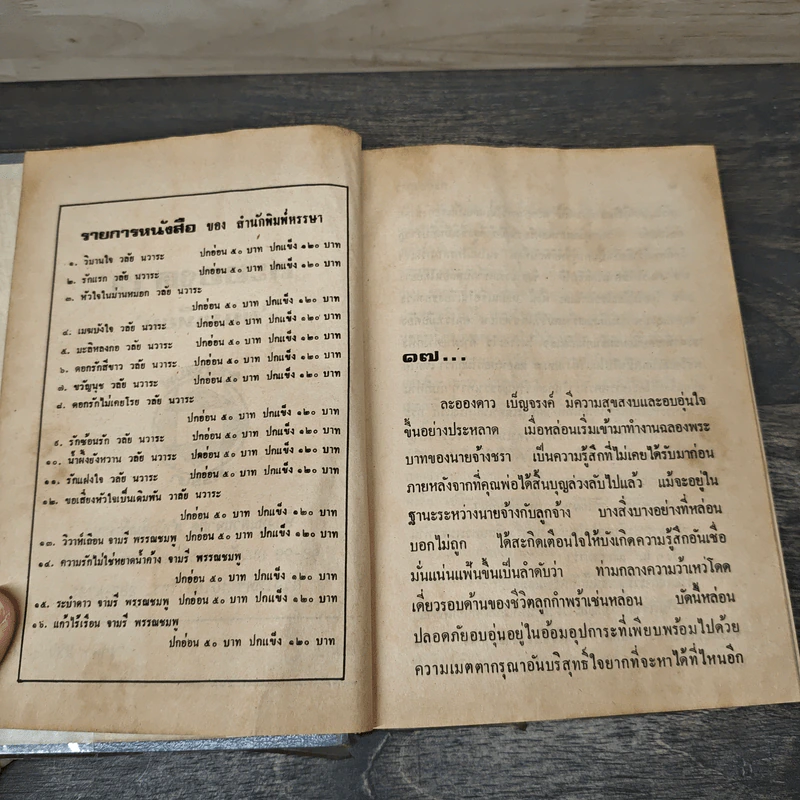 รายการหนังสือ ของ สำนักพิมพ์หรรษา
๑. วิมานใจ วลัย นวาระ ปกอ่อน ๕๐ บาท ปกแข็ง ๑๒๐ บาท
๒. รักแรก วลัย นวาระ ปกอ่อน ๕๐ บาท ปกแข็ง ๑๒๐ บาท
๓. หัวใจในม่านหมอก วลัย นวาระ
ปกอ่อน ๕๐ บาท ปกแข็ง ๑๒๐ บาท
๔. เมฆบังใจ วลัย นวาระ ปกอ่อน ๕๐ บาท ปกแข็ง ๑๒๐ บาท
๕. มะลิหลงกอ วลัย นวาระ ปกอ่อน ๕๐ บาท ปกแข็ง ๑๒๐ บาท
๖. ดอกรักสีขาว วลัย นวาระ ปกอ่อน ๕๐ บาท ปกแข็ง ๑๒๐ บาท
๗. ขวัญนุช วลัย นวาระ ปกอ่อน ๕๐ บาท ปกแข็ง ๑๒๐ บาท
๘. ดอกรักไม่เคยโรย วลัย นวาระ
ปกอ่อน ๕๐ บาท ปกแข็ง ๑๒๐ บาท
๙. รักซ้อนรัก วลัย นวาระ ปกอ่อน ๕๐ บาท ปกแข็ง ๑๒๐ บาท
๑๐. น้ำผึ้งยังหวาน วลัย นวาระ ปกอ่อน ๕๐ บาท ปกแข็ง ๑๒๐ บาท
๑๑. รักแฝงใจ วลัย นวาระ ปกอ่อน ๕๐ บาท ปกแข็ง ๑๒๐ บาท
๑๒. ขอเสี่ยงหัวใจเป็นเดิมพัน วาลัย นวาระ
ปกอ่อน ๕๐ บาท ปกแข็ง ๑๒๐ บาท
๑๓. วิวาห์เถื่อน จามรี พรรณชมพู ปกอ่อน ๕๐ บาท ปกแข็ง ๑๒๐ บาท
๑๔. ความรักไม่ใช่หยาดน้ำค้าง จามรี พรรณชมพู
ปกอ่อน ๕๐ บาท ปกแข็ง ๑๒๐ บาท
๑๕. ระบำดาว จามรี พรรณชมพู ปกอ่อน ๕๐ บาท ปกแข็ง ๑๒๐ บาท
๑๖. แก้วไร้เรือน จามรี พรรณชมพู
ปกอ่อน ๕๐ บาท ปกแข็ง ๑๒๐ บาท
๑๗...
ละอองดาว เบ็ญจรงค์ มีความสุขสงบและอบอุ่นใจ
ขึ้นอย่างประหลาด เมื่อหล่อนเริ่มเข้ามาทำงานฉลองพระ
บาทของนายจ้างชรา เป็นความรู้สึกที่ไม่เคยได้รับมาก่อน
ภายหลังจากที่คุณพ่อได้สิ้นบุญล่วงลับไปแล้ว แม้จะอยู่ใน
ฐานะระหว่างนายจ้างกับลูกจ้าง บางสิ่งบางอย่างที่หล่อน
บอกไม่ถูก ได้สะกิดเตือนใจให้บังเกิดความรู้สึกอันเชื่อ
มั่นแน่นแฟ้นขึ้นเป็นลำดับว่า ท่ามกลางความว้าเหว่โดด
เดี่ยวรอบด้านของชีวิตลูกกำพร้าเช่นหล่อน บัดนี้หล่อน
ปลอดภัยอบอุ่นอยู่ในอ้อมอุปการะที่เพียบพร้อมไปด้วย
ความเมตตากรุณาอันบริสุทธิ์ใจยากที่จะหาได้ที่ไหนอีก